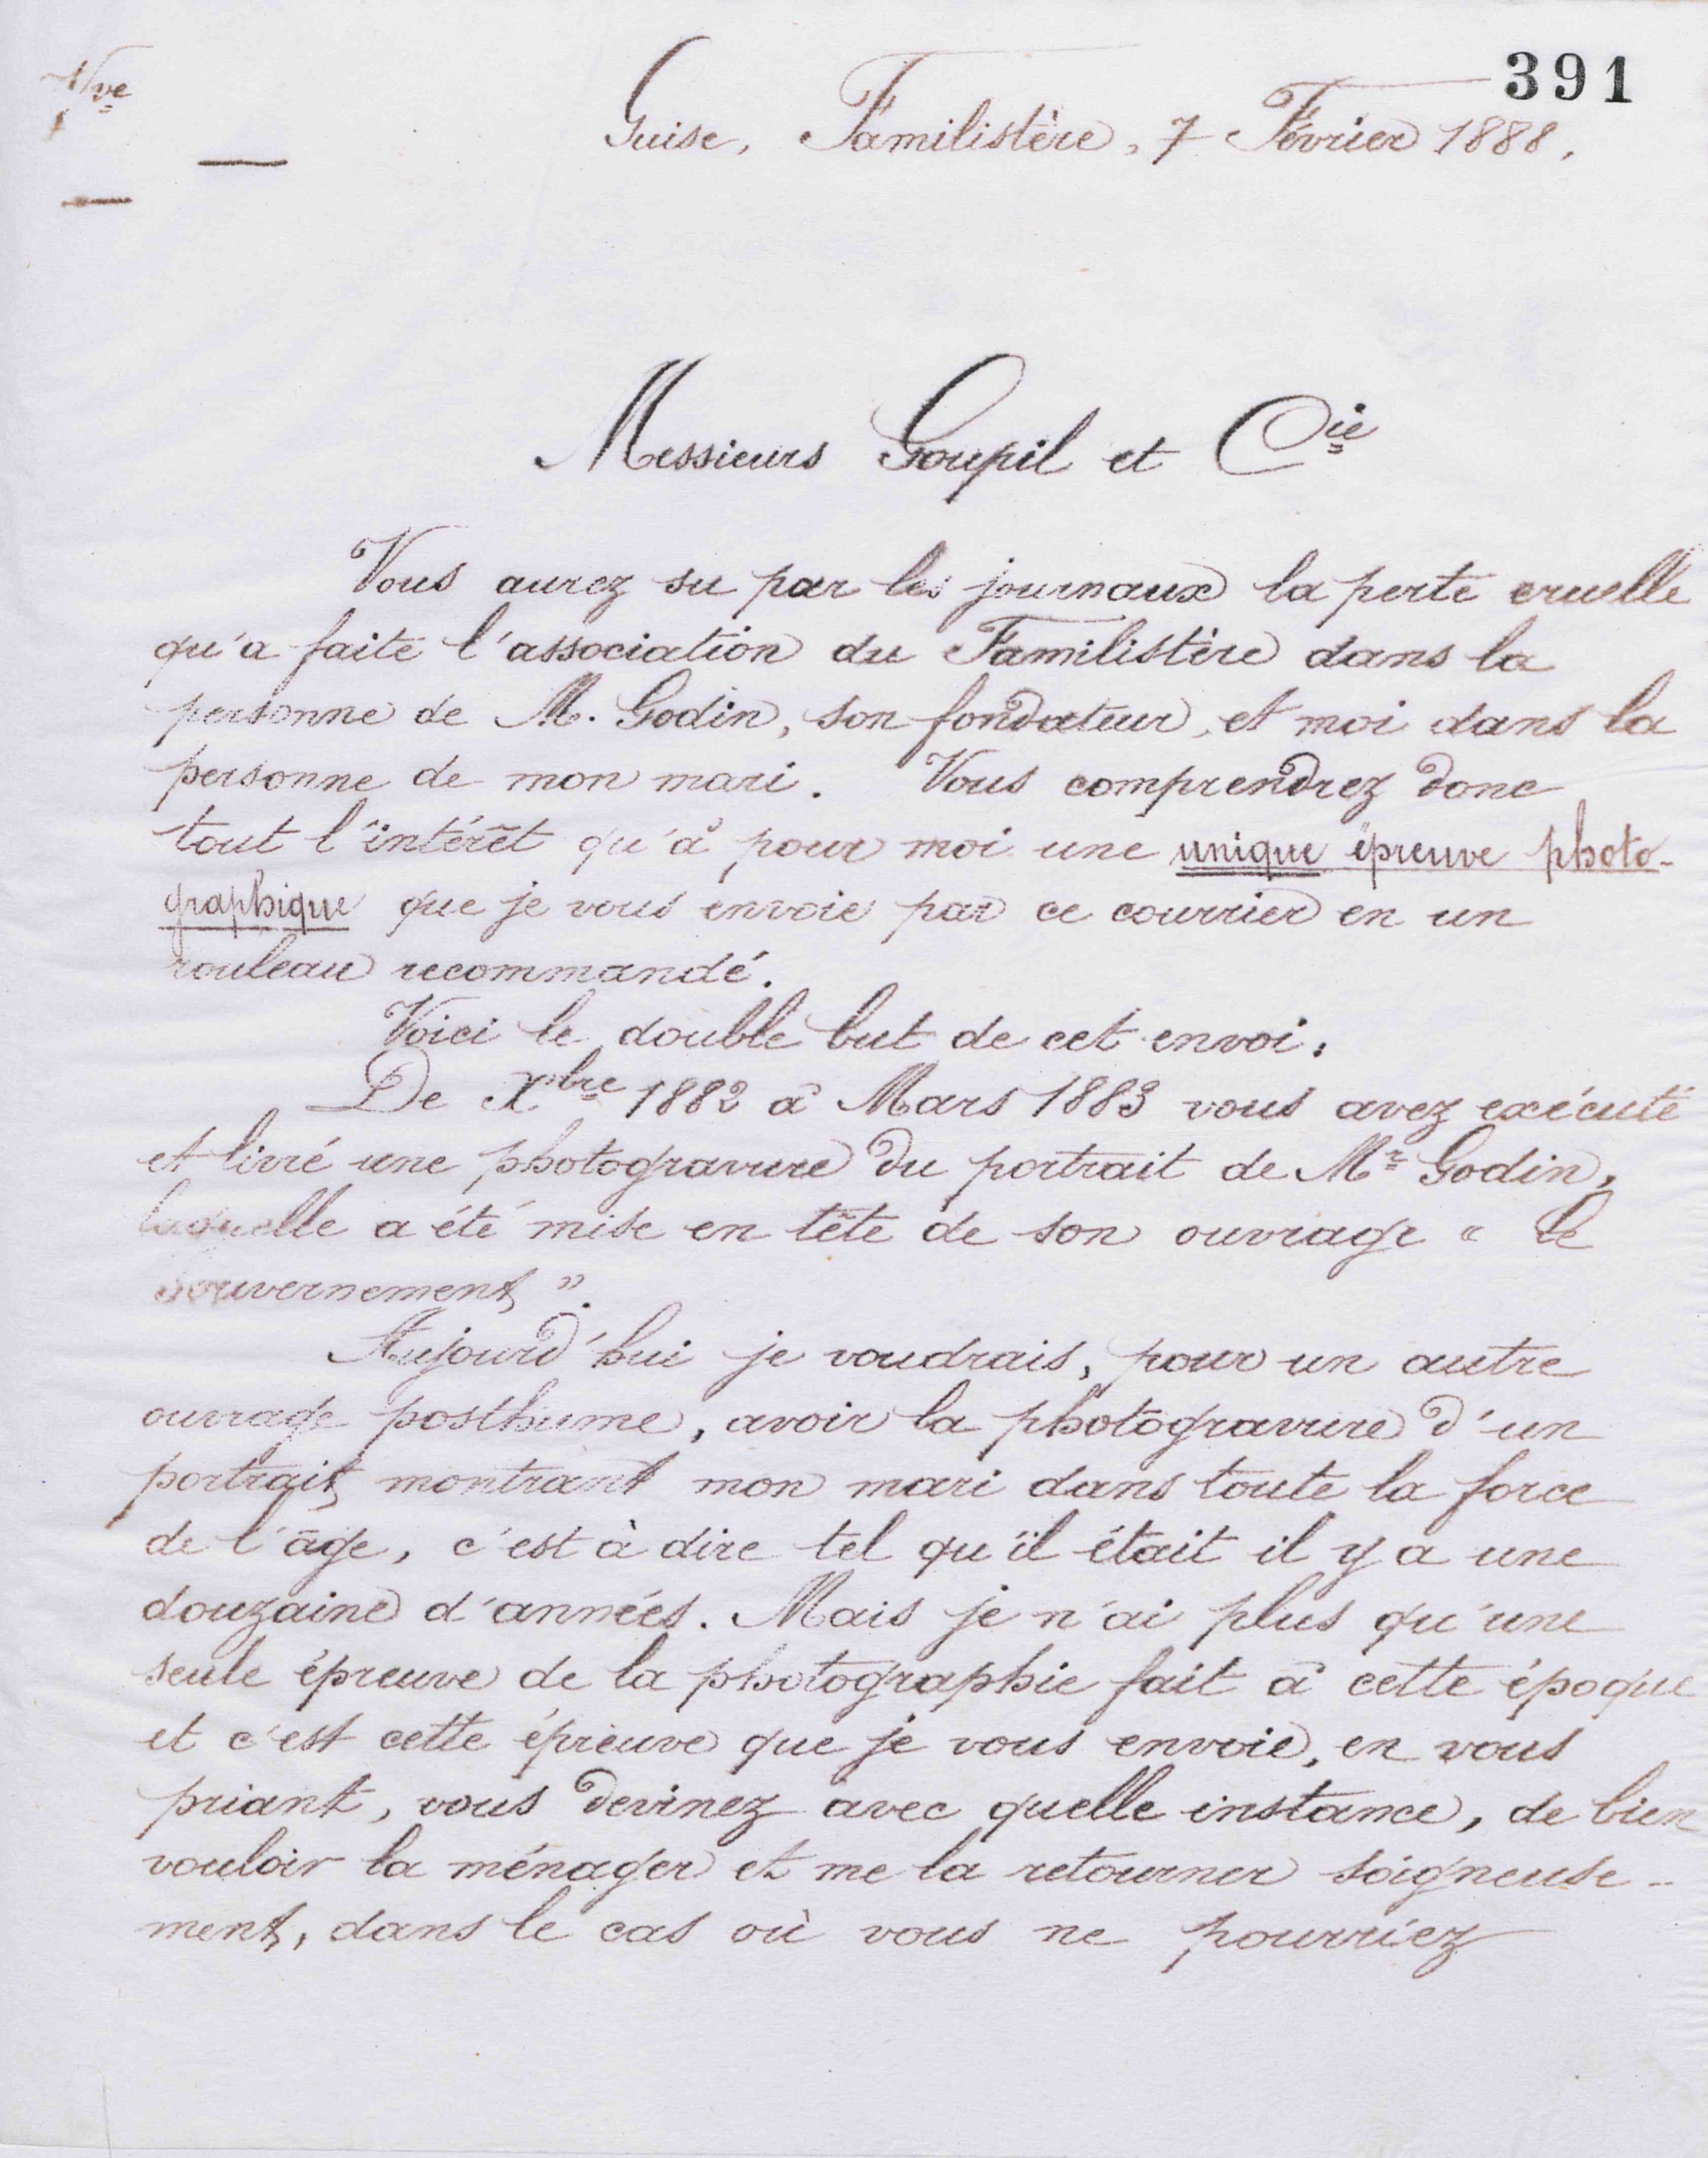 391
Vve
Guise, Familistère, 7 Février 1888.
Messieurs Goupil et Cie
Vous aurez su par les journaux la perte cruelle
qu'a faite l'association du Familistère dans la
personne de M. Godin, son fondateur, et moi dans la
personne de mon mari. Vous comprendrez donc
tout l'intérêt qu'a pour moi une unique épreuve photo-
graphique que je vous envoie par ce courrier en un
rouleau recommandé.
Voici le double but de cet envoi.
De Xbre 1882 à Mars 1883 vous avez exécuté
et livré une photogravure du portrait de Mr Godin,
laquelle a été mise en tête de son ouvrage « Le
Gouvernement ».
Aujourd'hui je voudrais, pour un autre
ouvrage posthume, avoir la photogravure d'un
portrait montrant mon mari dans toute la force
de l'âge, c'est à dire tel qu'il était il y a une
douzaine d'années. Mais je n'ai plus qu'une
seule épreuve de la photographie fait à cette époque
et c'est cette épreuve que je vous envoie, en vous
priant, vous devinez avec quelle instance, de bien
vouloir la ménager et me la retourner soigneuse-
ment, dans le cas où vous ne pourriez